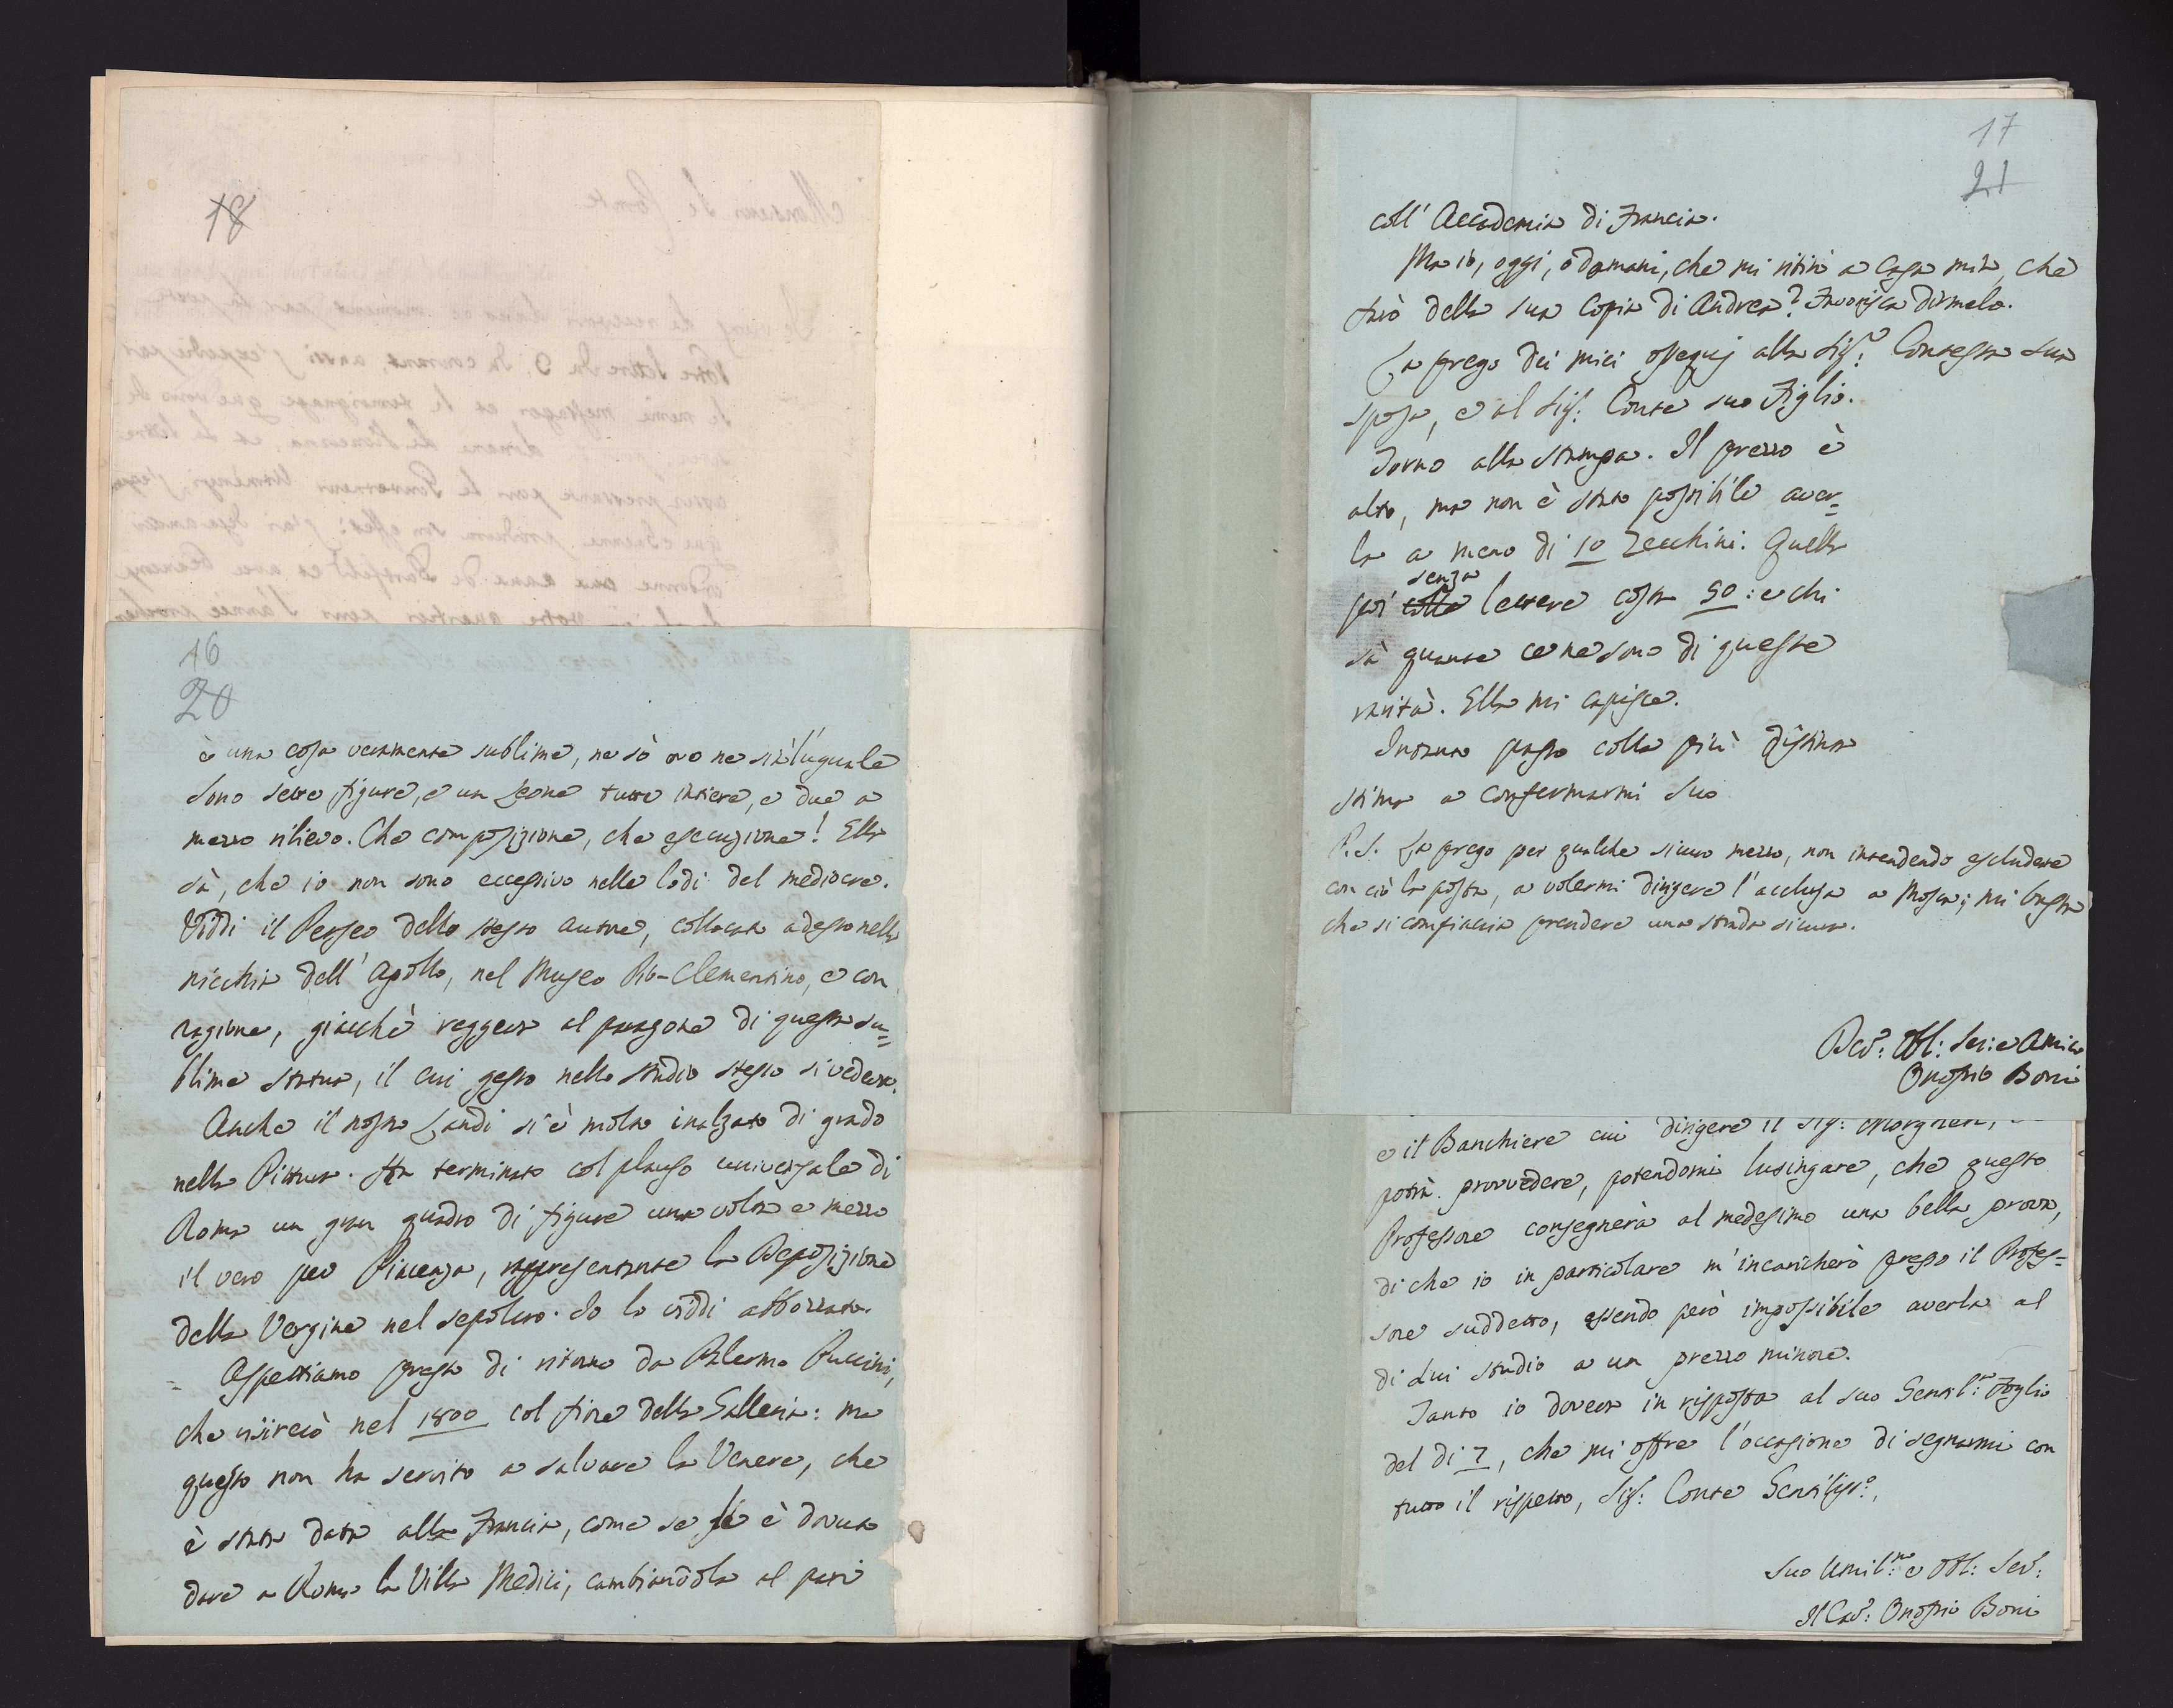 18
16
20
è una cosa veramente sublime, ne sò ove ne sia l'uguale
sono sette figure, e un Leone tutte intiere, e due a
mezzo rilievo. Che composizione, che esecuzione! Ella
sà, che io non sono eccessivo nelle lodi del mediocre.
Viddi il Perseo dello stesso autore, collocato adesso nella
nicchia dell'Apollo, nel Museo Pio-Clementino, e con
ragione, giacchè reggeva al paragone di questa su=
blime statua, il cui gesso nello studio stesso si vedeva.
Anche il nostro Landi si è molto inalzato di grado
nella Pittura. Ha terminato col plauso universale di
Roma un gran quadro di figure una volta e mezzo
il vero per Piacenza, rappresentante la Deposizione
della Vergine nel sepolcro. Io lo viddi abbozzato.
Aspettiamo presto di ritorno da Palermo Puccini,
che vi si recò nel 1800 col fiore della Galleria: ma
questo non ha servito a salvare la Venere, che
è stata data alla Francia, come se è dovuta
dare a Roma la Villa Medici, cambiandola al pari
17
21
coll'Accademia di Francia.
Ma io, oggi, o domani, che mi ritiri a casa mia, che
farò della sua Copia di Andrea? Favorisca dirmelo.
La prego dei miei ossequj alla Sig.ra Contessa sua
sposa, e al Sig: Conte suo Figlio.
Torno alla stampa. Il prezzo è
alto, ma non è stato possibile aver=
la a meno di 10 Zecchini. Quella
poi colle senza lettere costa 50: e chi
sà quante ce ne sono di queste
rarità. Ella mi capisce.
Intanto passo colla più distinta
stima a confermarmi Suo
P.S. La prego per qualche sicuro mezzo, non intendendo escludere
con ciò la posta, a volermi dirigere l'acclusa a Mosca; mi basta
che si compiaccia prendere una strada sicura.
Dev: Obl: Ser: e Amico
Onofrio Boni
e il Banchiere cui dirigere il Sig: Morghen,
potrà provvedere, potendomi lusingare, che questo
Professore consegnerà al medesimo una bella prova,
di che io in particolare m'incaricherò presso il Profes=
sore suddetto, essendo però impossibile averla al
di lui studio a un prezzo minore.
Tanto io doveva in risposta al suo Gentil.mo Foglio
del di 7, che mi offre l'occasione di segnarmi con
tutto il rispetto, Sig: Conte Gentiliss.o,
Suo Umil.mo e Obl: Ser:
Il Cav: Onofrio Boni